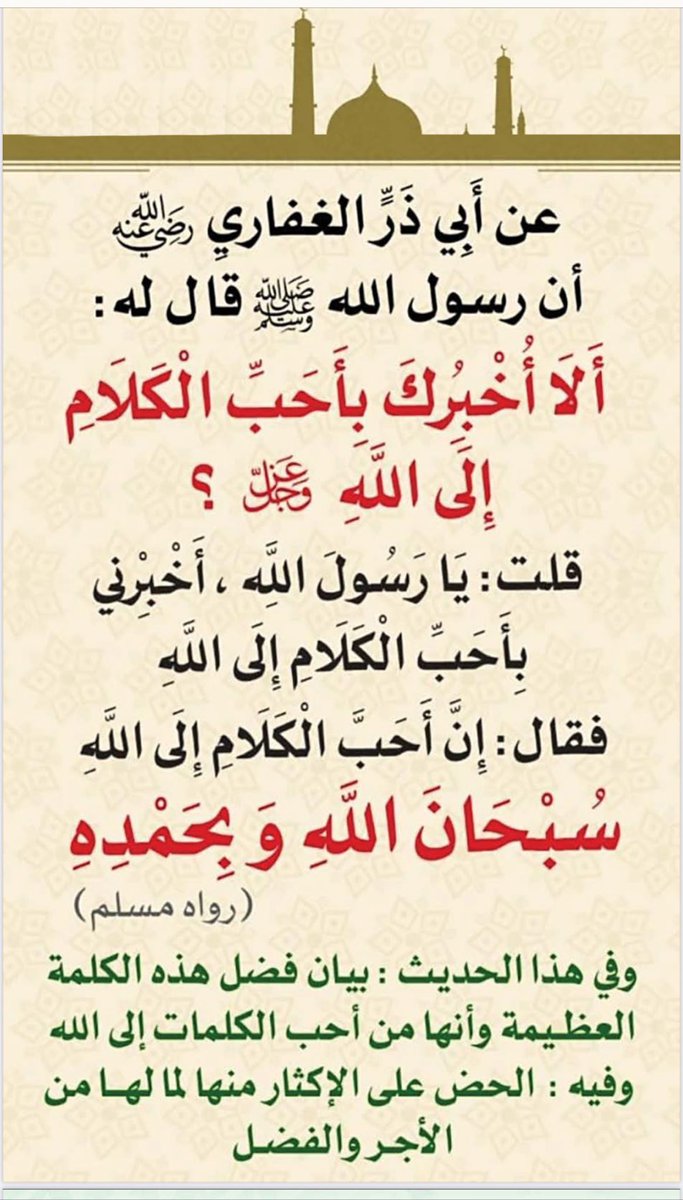 عن أَبِي ذَرٍّ الغفاريِ رَضِيَ اللهُ عَنْهُ
أن رسول الله ﷺ قال له :
أَلَا أُخْبِرُكَ بِأَحَبِّ الْكَلَامِ
إِلَى اللَّهِ عَزَّ وَجَلَّ ؟
قلت : يَا رَسُولَ اللَّهِ ، أَخْبِرْني
بِأَحَبِّ الْكَلَامِ إِلَى اللَّهِ
فقال : إِنَّ أَحَبَّ الْكَلَامِ إِلَى اللَّهِ
سُبْحَانَ اللَّهِ وَ بِحَمْدِهِ
(رواه مسلم)
وفي هذا الحديث : بيان فضل هذه الكلمة
العظيمة وأنها من أحب الكلمات إلى الله
وفيه : الحض على الإكثار منها لما لهـا من
الأجر والفضل